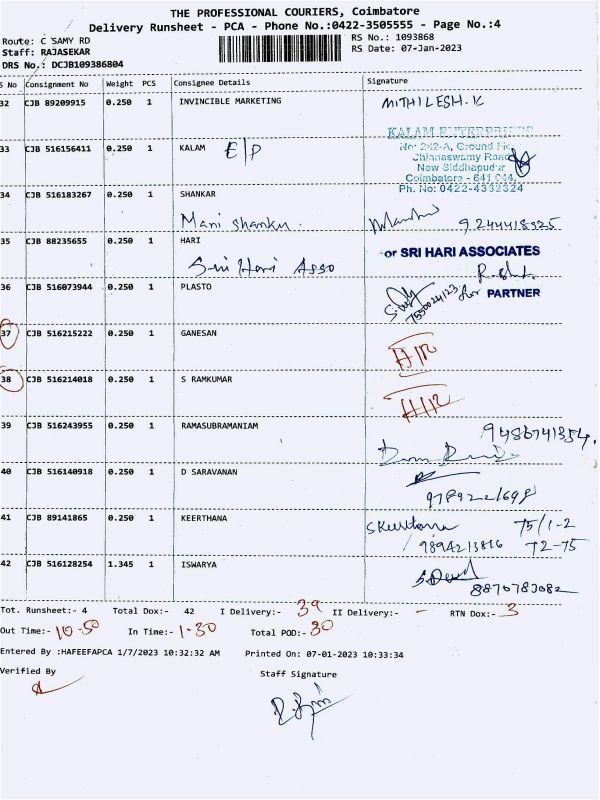 THE PROFESSIONAL COURIERS, Coimbatore
Delivery Runsheet - PCA - Phone No.:0422-3505555 - Page No.:4
Route: C SAMY RD RS No.: 1093868
Staff: RAJASEKAR RS Date: 07-Jan-2023
DRS No.: DCJB109386804
S No Consignment No Weight PCS Consignee Details Signature
32 CJB 89209915 0.250 1 INVINCIBLE MARKETING MITHILESH.K
KALAM ENTERPRISES
33 CJB 516156411 0.250 1 KALAM E/P No: 262-A, Ground
Chinnaswamy Road
New Siddhapudur
Coimbatore - 641 044.
Ph. No: 0422-4332324
34 CJB 516183267 0.250 1 SHANKAR
Mani Shankar 9244418325
35 CJB 88235655 0.250 1 HARI or SRI HARI ASSOCIATES
Sri Hari Asso
36 CJB 516073944 0.250 1 PLASTO 7550024123 for PARTNER
37 CJB 516215222 0.250 1 GANESAN
38 CJB 516214018 0.250 1 S RAMKUMAR
39 CJB 516243955 0.250 1 RAMASUBRAMANIAM 9486741354.
40 CJB 516140918 0.250 1 D SARAVANAN
41 CJB 89141865 0.250 1 KEERTHANA S Keerthana 75/1-2
9894213816 T2-75
42 CJB 516128254 1.345 1 ISWARYA
8870783082
Tot. Runsheet:- 4 Total Dox:- 42 I Delivery:- 39 II Delivery:- - RTN Dox:- 3
Out Time:- 10-50 In Time:- 1-30 Total POD:- 30
Entered By :HAFEEFAPCA 1/7/2023 10:32:32 AM Printed On: 07-01-2023 10:33:34
Verified By Staff Signature